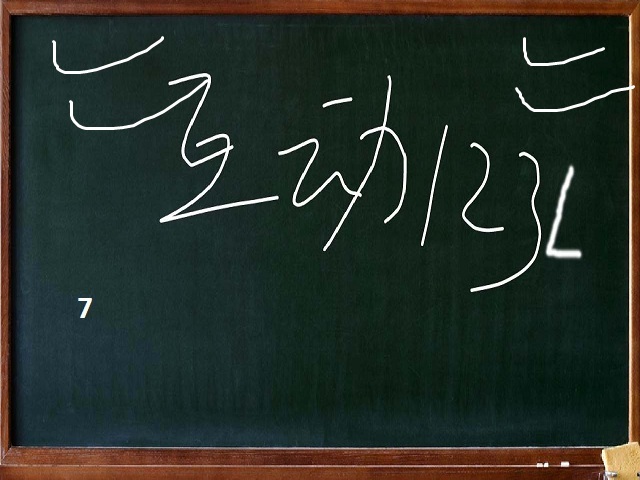 互动123L
7